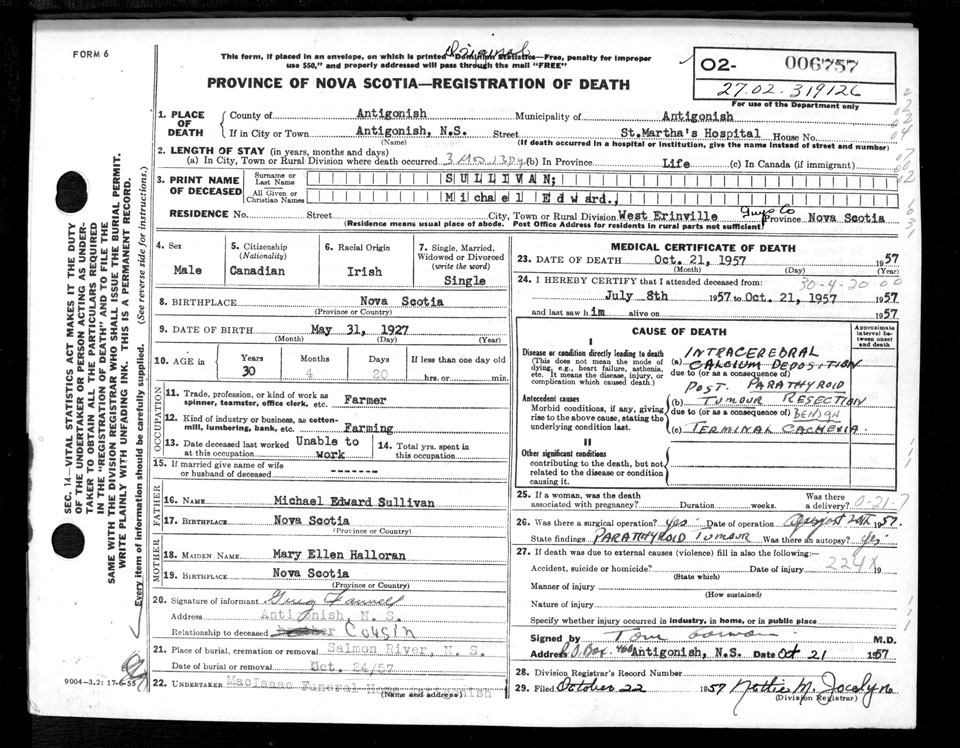 FORM 6
This form, if placed in an envelope, on which is printed "Dominion Statistics—Free, penalty for improper
use $50," and properly addressed will pass through the mail "FREE"
PROVINCE OF NOVA SCOTIA—REGISTRATION OF DEATH
02- 006757
27.02-319126
For use of the Department only
1. PLACE OF DEATH
County of Antigonish Municipality of Antigonish
If in City or Town Antigonish, N.S. Street St.Martha's Hospital House No.
(Name) (If death occurred in a hospital or institution, give the name instead of street and number)
2. LENGTH OF STAY (in years, months and days)
(a) In City, Town or Rural Division where death occurred 3 Mos 13 Dy (b) In Province Life (c) In Canada (if immigrant)
3. PRINT NAME OF DECEASED
Surname or Last Name SULLIVAN;
All Given or Christian Names Michael Edward.,
RESIDENCE No. Street City, Town or Rural Division West Erinville Guys Co Province Nova Scotia
(Residence means usual place of abode. Post Office Address for residents in rural parts not sufficient)
4. Sex
Male
5. Citizenship
(Nationality)
Canadian
6. Racial Origin
Irish
7. Single, Married, Widowed or Divorced
(write the word)
Single
8. BIRTHPLACE Nova Scotia
(Province or Country)
9. DATE OF BIRTH May 31, 1927
(Month) (Day) (Year)
10. AGE in Years Months Days If less than one day old
30 4 20 hrs. or min.
OCCUPATION
11. Trade, profession, or kind of work as
spinner, teamster, office clerk, etc. Farmer
12. Kind of industry or business, as cotton-
mill, lumbering, bank, etc. Farming
13. Date deceased last worked at this occupation Unable to work
14. Total yrs. spent in this occupation
15. If married give name of wife
or husband of deceased -------
FATHER
16. NAME Michael Edward Sullivan
17. BIRTHPLACE Nova Scotia
(Province or Country)
MOTHER
18. MAIDEN NAME Mary Ellen Halloran
19. BIRTHPLACE Nova Scotia
(Province or Country)
20. Signature of informant
Address Antigonish, N. S.
Relationship to deceased Cousin
21. Place of burial, cremation or removal Salmon River, N. S.
Date of burial or removal Oct. 24/57
22. UNDERTAKER MacIsaac Funeral Home Antigonish
(Name and address)
MEDICAL CERTIFICATE OF DEATH
23. DATE OF DEATH Oct. 21, 1957 1957
(Month) (Day) (Year)
30-4-20 00
24. I HEREBY CERTIFY that I attended deceased from:
July 8th 1957 to Oct. 21, 1957 1957
and last saw him alive on 1957
CAUSE OF DEATH
Approximate interval between onset and death
I
Disease or condition directly leading to death
(This does not mean the mode of dying, e.g., heart failure, asthenia, etc. It means the disease, injury, or complication which caused death.)
INTRACEREBRAL
(a) CALCIUM DEPOSITION
due to (or as a consequence of)
POST PARATHYROID
Antecedent causes
Morbid conditions, if any, giving rise to the above cause, stating the underlying condition last.
(b) TUMOUR RESECTION
due to (or as a consequence of) BENIGN
(c) TERMINAL CACHEXIA.
II
Other significant conditions
contributing to the death, but not related to the disease or condition causing it.
25. If a woman, was the death
associated with pregnancy? Duration weeks. Was there a delivery? 0-21-7
26. Was there a surgical operation? yes Date of operation August 20th 1957.
State findings PARATHYROID TUMOUR Was there an autopsy? yes
27. If death was due to external causes (violence) fill in also the following:—
224X
Accident, suicide or homicide? Date of injury 19
(State which)
Manner of injury
(How sustained)
Nature of injury
Specify whether injury occurred in industry, in home, or in public place
Signed by M.D.
Address P.O. Box 468 Antigonish, N.S. Date Oct 21 1957
28. Division Registrar's Record Number
29. Filed October 22 1957 Nettie M. Jocelyn
(Division Registrar)
SEC. 14—VITAL STATISTICS ACT MAKES IT THE DUTY
OF THE UNDERTAKER OR PERSON ACTING AS UNDER-
TAKER TO OBTAIN ALL THE PARTICULARS REQUIRED
IN THE "REGISTRATION OF DEATH" AND TO FILE THE
SAME WITH THE DIVISION REGISTRAR WHO SHALL ISSUE THE BURIAL PERMIT.
WRITE PLAINLY WITH UNFADING INK. THIS IS A PERMANENT RECORD.
Every item of information should be carefully supplied. (See reverse side for instructions.)
9004-3.2: 17-6-55